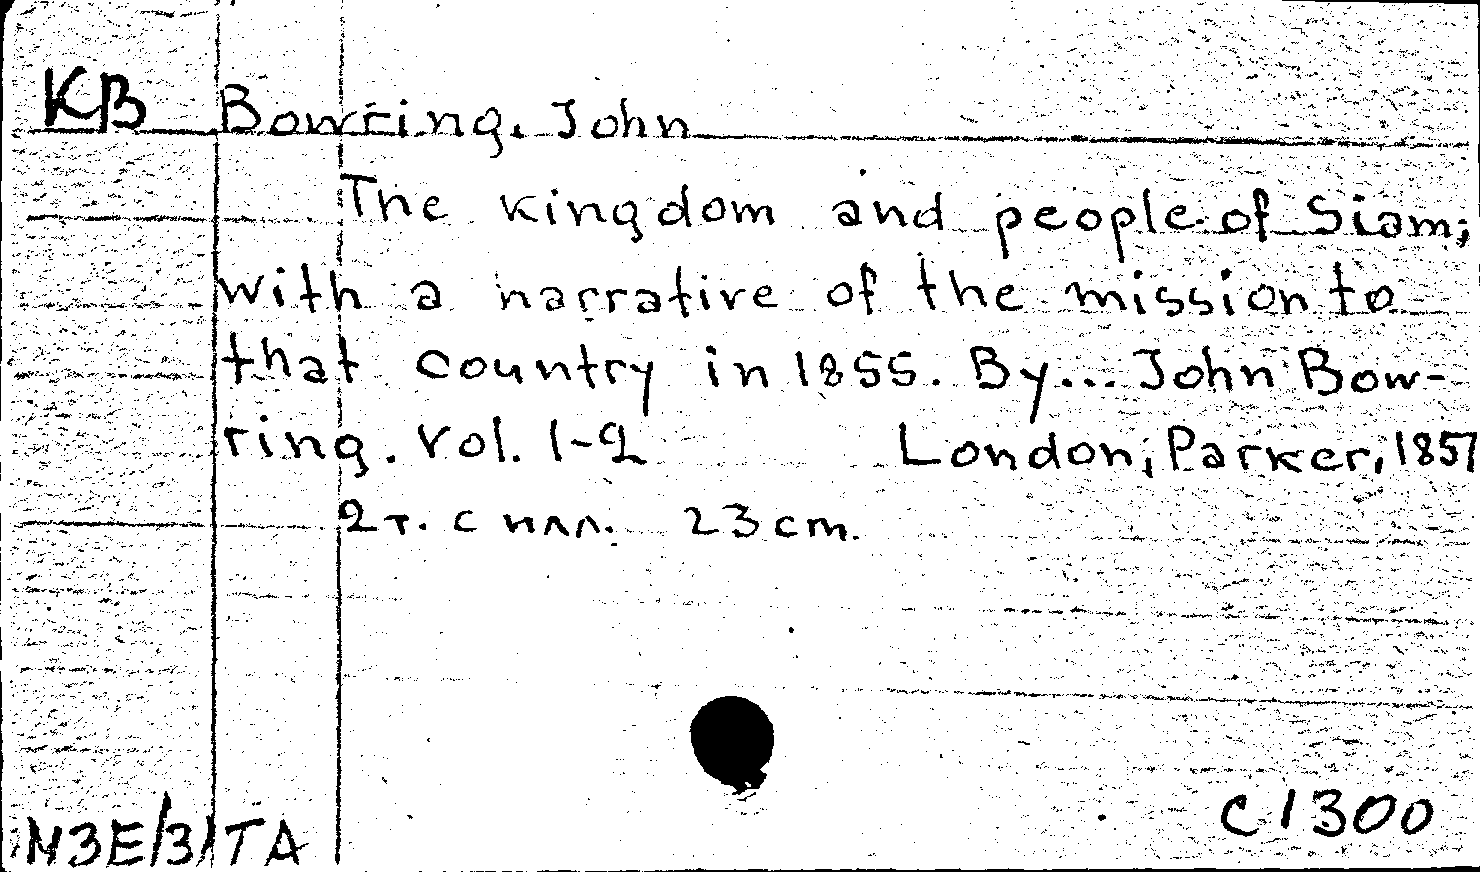 КВ Bowring, John
The kingdom and people of Siam;
with a narrative of the mission to
that country in 1855. By... John Bow-
ring. Vol. 1-2 London, Parker, 1857
2 т. с илл. 23 cm.
С 1300